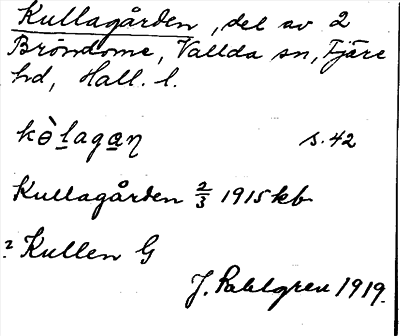 Kullagården, del av 2
Bröndome, Vallda sn, Fjäre
hd, Hall. l.
kòlagaη s. 42
Kullagården 2/3 1915 kb
? Kullen G
J. Pahlgren 1919.